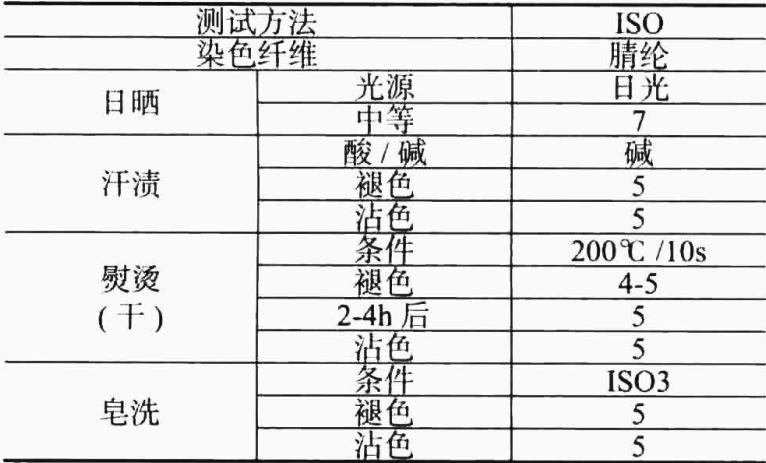 测试方法 ISO
染色纤维 腈纶
日晒 光源 日光
中等 7
汗渍 酸 / 碱 碱
褪色 5
沾色 5
熨烫 (干) 条件 200℃ /10s
褪色 4-5
2-4h 后 5
沾色 5
皂洗 条件 ISO3
褪色 5
沾色 5